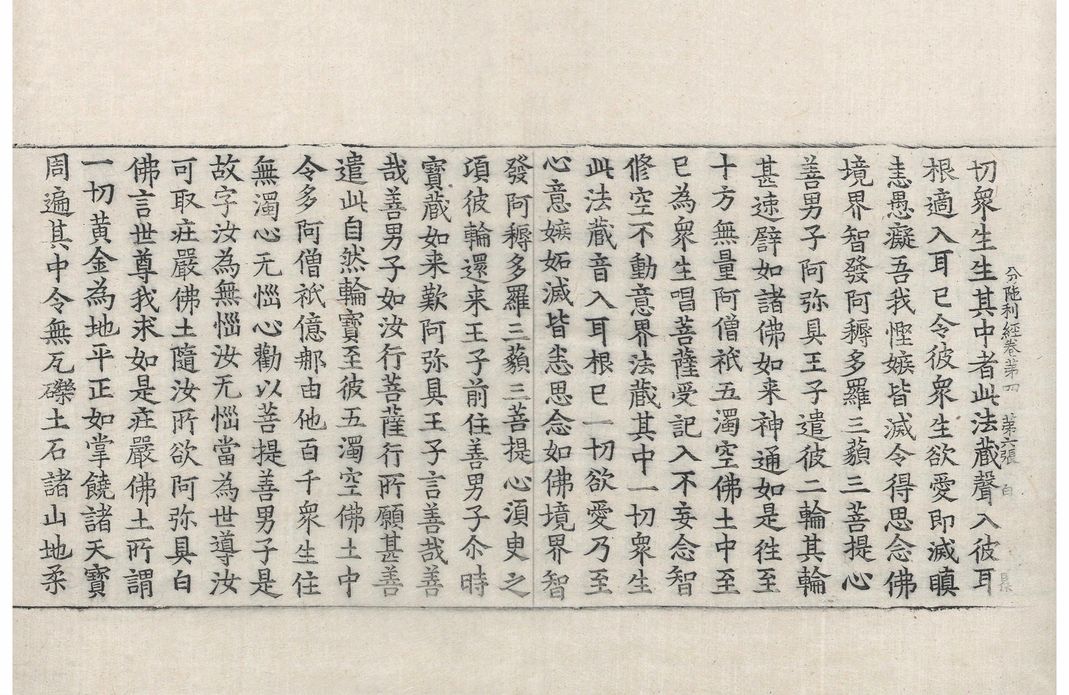 分陁利經卷第四 第六張 白
切衆生生其中者此法藏聲入彼耳
根適入耳已令彼衆生欲愛即滅瞋
恚愚癡吾我慳嫉皆滅令得思念佛
境界智發阿耨多羅三藐三菩提心
善男子阿弥具王子遣彼二輪其輪
甚速譬如諸佛如来神通如是往至
十方無量阿僧祇五濁空佛土中至
已為衆生唱菩薩受記入不妄念智
修空不動意界法藏其中一切衆生
此法藏音入耳根已一切欲愛乃至
心意嫉妬滅皆悉思念如佛境界智
發阿耨多羅三藐三菩提心須臾之
項彼輪還来王子前住善男子尒時
寶藏如来歎阿弥具王子言善哉善
哉善男子如汝行菩薩行所願甚善
遣此自然輪寶至彼五濁空佛土中
令多阿僧祇億那由他百千衆生住
無濁心无惱心勸以菩提善男子是
故字汝為無惱汝无惱當為世導汝
可取疰嚴佛土隨汝所欲阿弥具白
佛言世尊我求如是疰嚴佛土所謂
一切黄金為地平正如掌饒諸天寶
周遍其中令無瓦礫土石諸山地柔